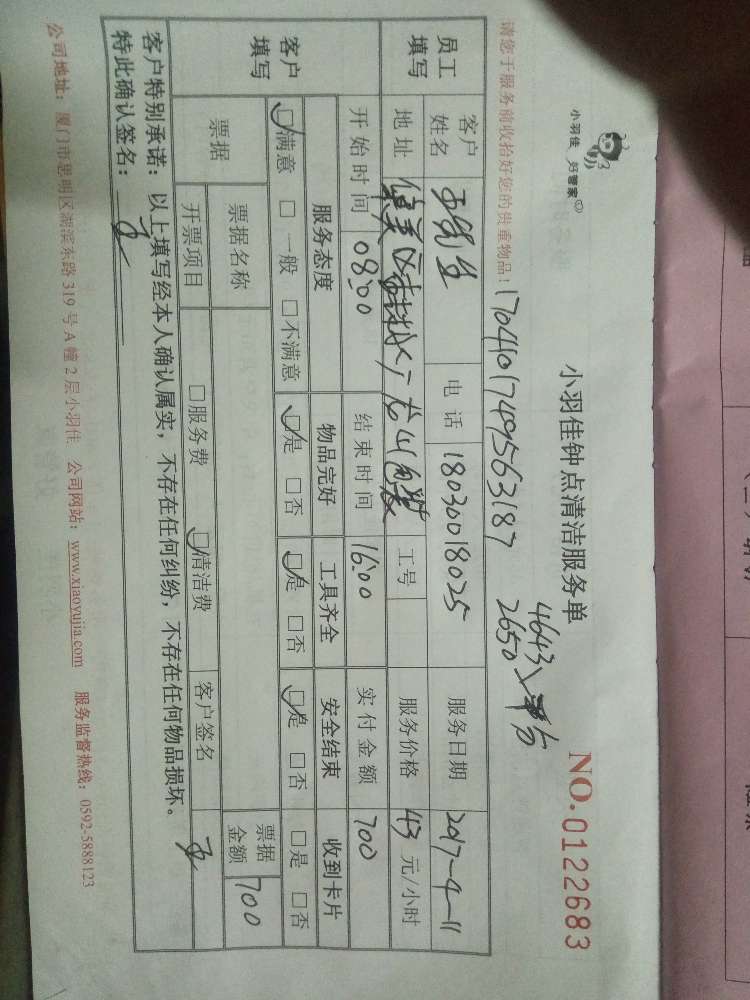 小羽佳 好管家
小羽佳钟点清洁服务单
NO.0122683
请您于服务前收拾好您的贵重物品！
17041017495563187
4643
2650
员工填写
客户姓名 王先生 电话 18030018025 服务日期 2017-9-11
地址 集美区 工号 服务价格 43 元/小时
客户填写
开始时间 08:00 结束时间 16:00 实付金额 700
服务态度 物品完好 工具齐全 安全结束 收到卡片
☑满意 □一般 □不满意 ☑是 □否 ☑是 □否 ☑是 □否 □是 □否
票据 票据名称 票据金额 700
开票项目 □服务费 ☑清洁费 客户签名
客户特别承诺：以上填写经本人确认属实，不存在任何纠纷，不存在任何物品损坏。
特此确认签名：
公司地址：厦门市思明区湖滨东路319号A幢2层小羽佳 公司网站：www.xiaoyujia.com 服务监督热线：0592-5888123